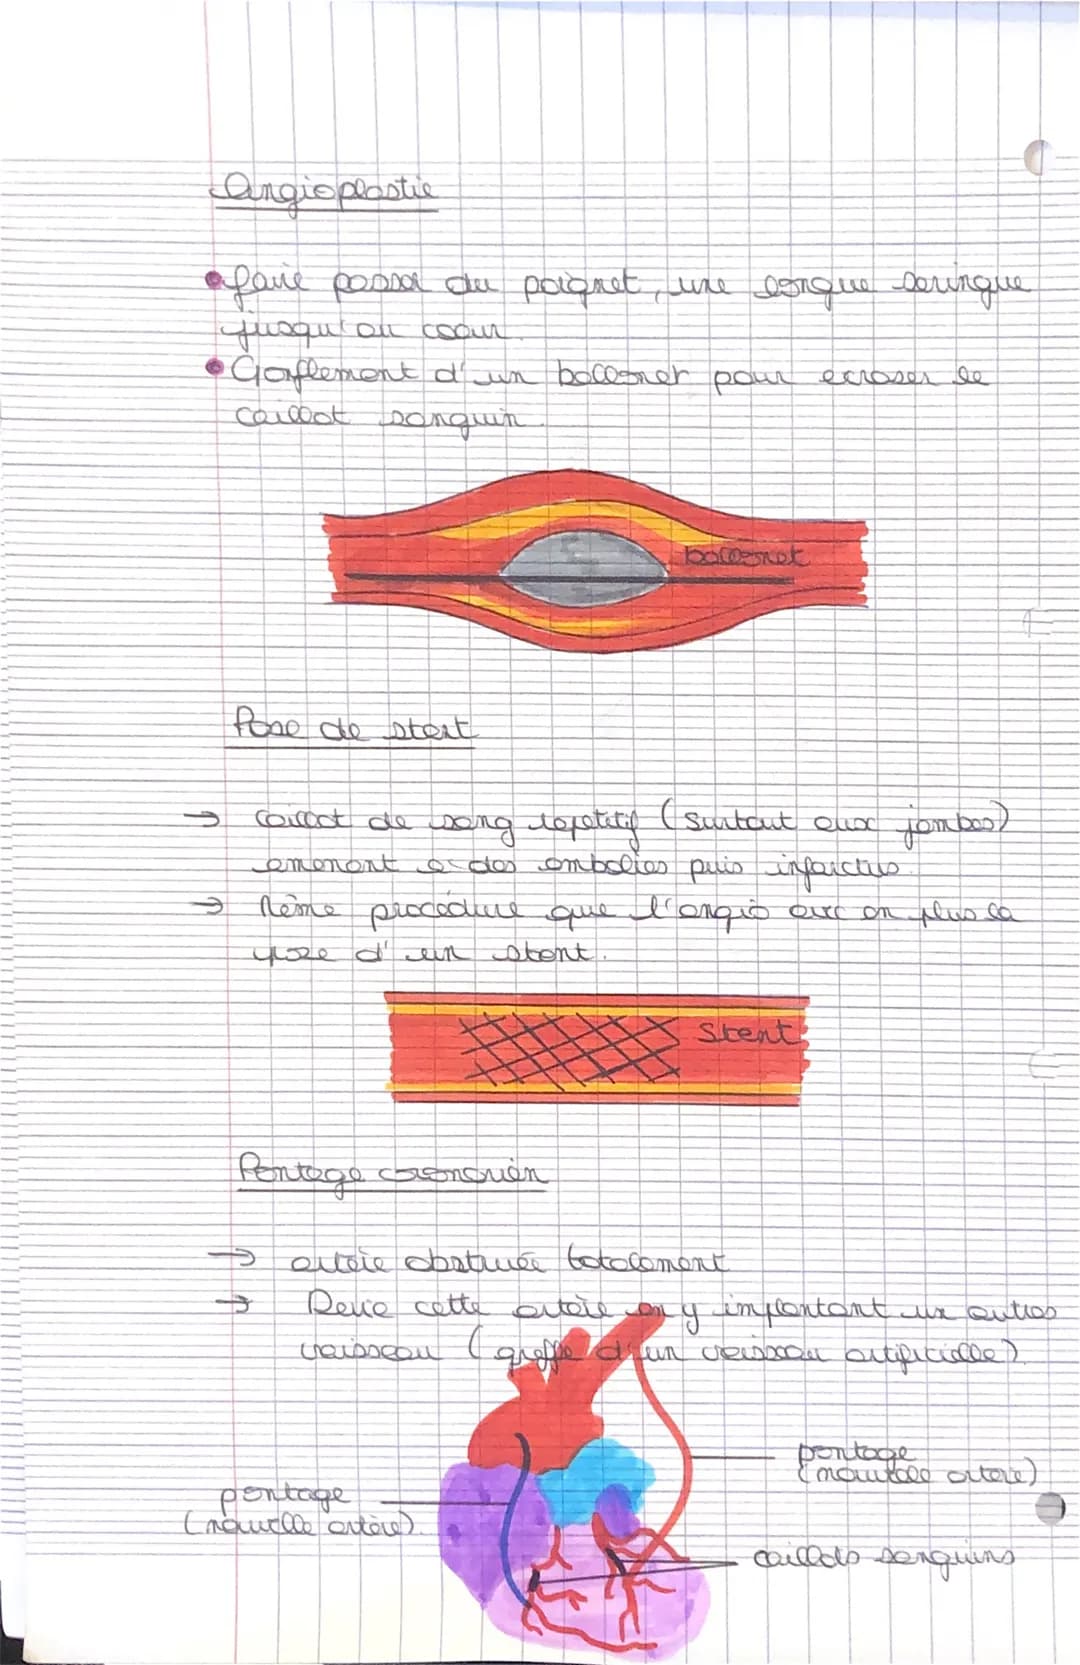 Angioplastie
• faire passer du poignet, une longue seringue
jusqu'au coeur.
• Gonflement d'un ballonet pour ecraser le
caillot sanguin.
ballonet
Pose de stent
→ caillot de sang repetitif (surtout aux jambes)
emenant a des embolies puis infarctus.
→ Même procédure que l'angio avec en plus la
pose d'un stent.
Stent
Pontage coronarien
→ artère obstruée totalement
→ Devie cette artère en y implantant un autres
vaisseau (greffe d'un vaisseau artificielle)
pontage
(nouvelle artere)
pontage
(nouvelle artère).
caillots sanguins